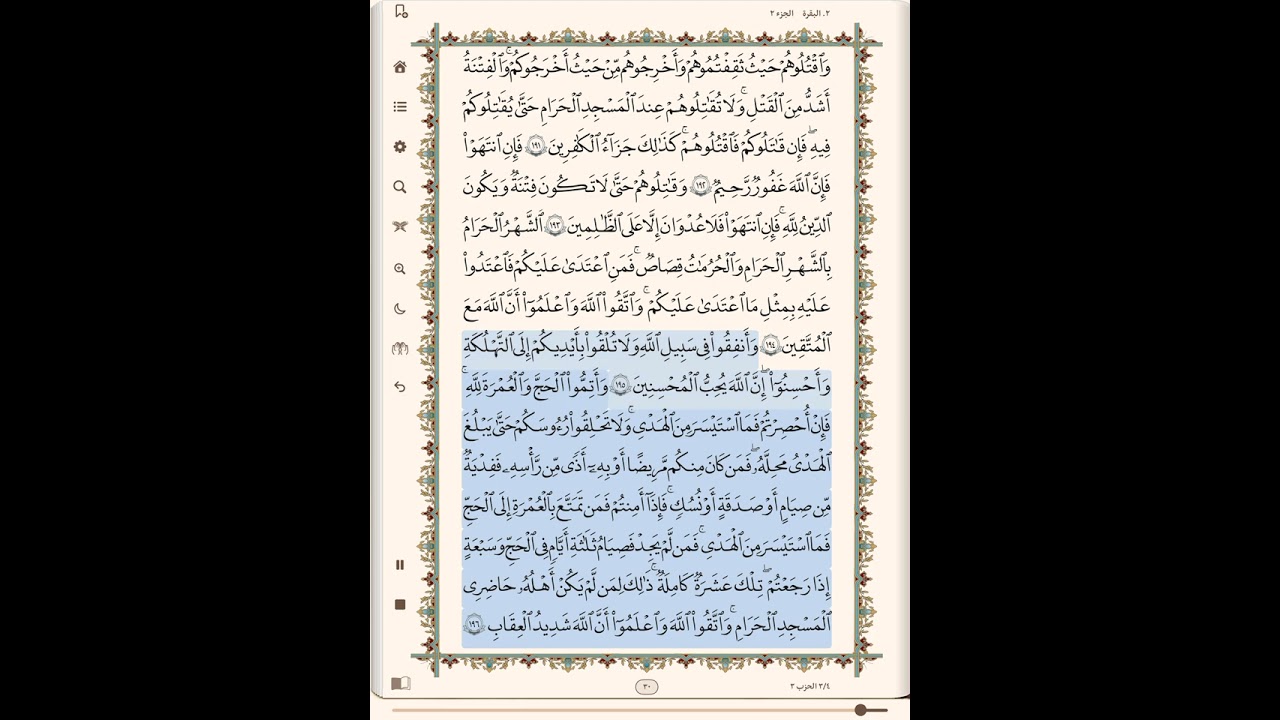 ٢. البقرة الجزء ٢
وَٱقْتُلُوهُمْ حَيْثُ ثَقِفْتُمُوهُمْ وَأَخْرِجُوهُم مِّنْ حَيْثُ أَخْرَجُوكُمْ ۚ وَٱلْفِتْنَةُ
أَشَدُّ مِنَ ٱلْقَتْلِ ۚ وَلَا تُقَٰتِلُوهُمْ عِندَ ٱلْمَسْجِدِ ٱلْحَرَامِ حَتَّىٰ يُقَٰتِلُوكُمْ
فِيهِ ۖ فَإِن قَٰتَلُوكُمْ فَٱقْتُلُوهُمْ ۗ كَذَٰلِكَ جَزَآءُ ٱلْكَٰفِرِينَ ١٩١ فَإِنِ ٱنتَهَوْا۟
فَإِنَّ ٱللَّهَ غَفُورٌ رَّحِيمٌ ١٩٢ وَقَٰتِلُوهُمْ حَتَّىٰ لَا تَكُونَ فِتْنَةٌ وَيَكُونَ
ٱلدِّينُ لِلَّهِ ۖ فَإِنِ ٱنتَهَوْا۟ فَلَا عُدْوَٰنَ إِلَّا عَلَى ٱلظَّٰلِمِينَ ١٩٣ ٱلشَّهْرُ ٱلْحَرَامُ
بِٱلشَّهْرِ ٱلْحَرَامِ وَٱلْحُرُمَٰتُ قِصَاصٌ ۚ فَمَنِ ٱعْتَدَىٰ عَلَيْكُمْ فَٱعْتَدُوا۟
عَلَيْهِ بِمِثْلِ مَا ٱعْتَدَىٰ عَلَيْكُمْ ۚ وَٱتَّقُوا۟ ٱللَّهَ وَٱعْلَمُوٓا۟ أَنَّ ٱللَّهَ مَعَ
ٱلْمُتَّقِينَ ١٩٤ وَأَنفِقُوا۟ فِى سَبِيلِ ٱللَّهِ وَلَا تُلْقُوا۟ بِأَيْدِيكُمْ إِلَى ٱلتَّهْلُكَةِ
وَأَحْسِنُوٓا۟ ۛ إِنَّ ٱللَّهَ يُحِبُّ ٱلْمُحْسِنِينَ ١٩٥ وَأَتِمُّوا۟ ٱلْحَجَّ وَٱلْعُمْرَةَ لِلَّهِ ۚ
فَإِنْ أُحْصِرْتُمْ فَمَا ٱسْتَيْسَرَ مِنَ ٱلْهَدْىِ ۖ وَلَا تَحْلِقُوا۟ رُءُوسَكُمْ حَتَّىٰ يَبْلُغَ
ٱلْهَدْىُ مَحِلَّهُۥ ۚ فَمَن كَانَ مِنكُم مَّرِيضًا أَوْ بِهِۦٓ أَذًى مِّن رَّأْسِهِۦ فَفِدْيَةٌ
مِّن صِيَامٍ أَوْ صَدَقَةٍ أَوْ نُسُكٍ ۚ فَإِذَآ أَمِنتُمْ فَمَن تَمَتَّعَ بِٱلْعُمْرَةِ إِلَى ٱلْحَجِّ
فَمَا ٱسْتَيْسَرَ مِنَ ٱلْهَدْىِ ۚ فَمَن لَّمْ يَجِدْ فَصِيَامُ ثَلَٰثَةِ أَيَّامٍ فِى ٱلْحَجِّ وَسَبْعَةٍ
إِذَا رَجَعْتُمْ ۗ تِلْكَ عَشَرَةٌ كَامِلَةٌ ۗ ذَٰلِكَ لِمَن لَّمْ يَكُنْ أَهْلُهُۥ حَاضِرِى
ٱلْمَسْجِدِ ٱلْحَرَامِ ۚ وَٱتَّقُوا۟ ٱللَّهَ وَٱعْلَمُوٓا۟ أَنَّ ٱللَّهَ شَدِيدُ ٱلْعِقَابِ ١٩٦
٣/٤ الحزب ٣
٣٠